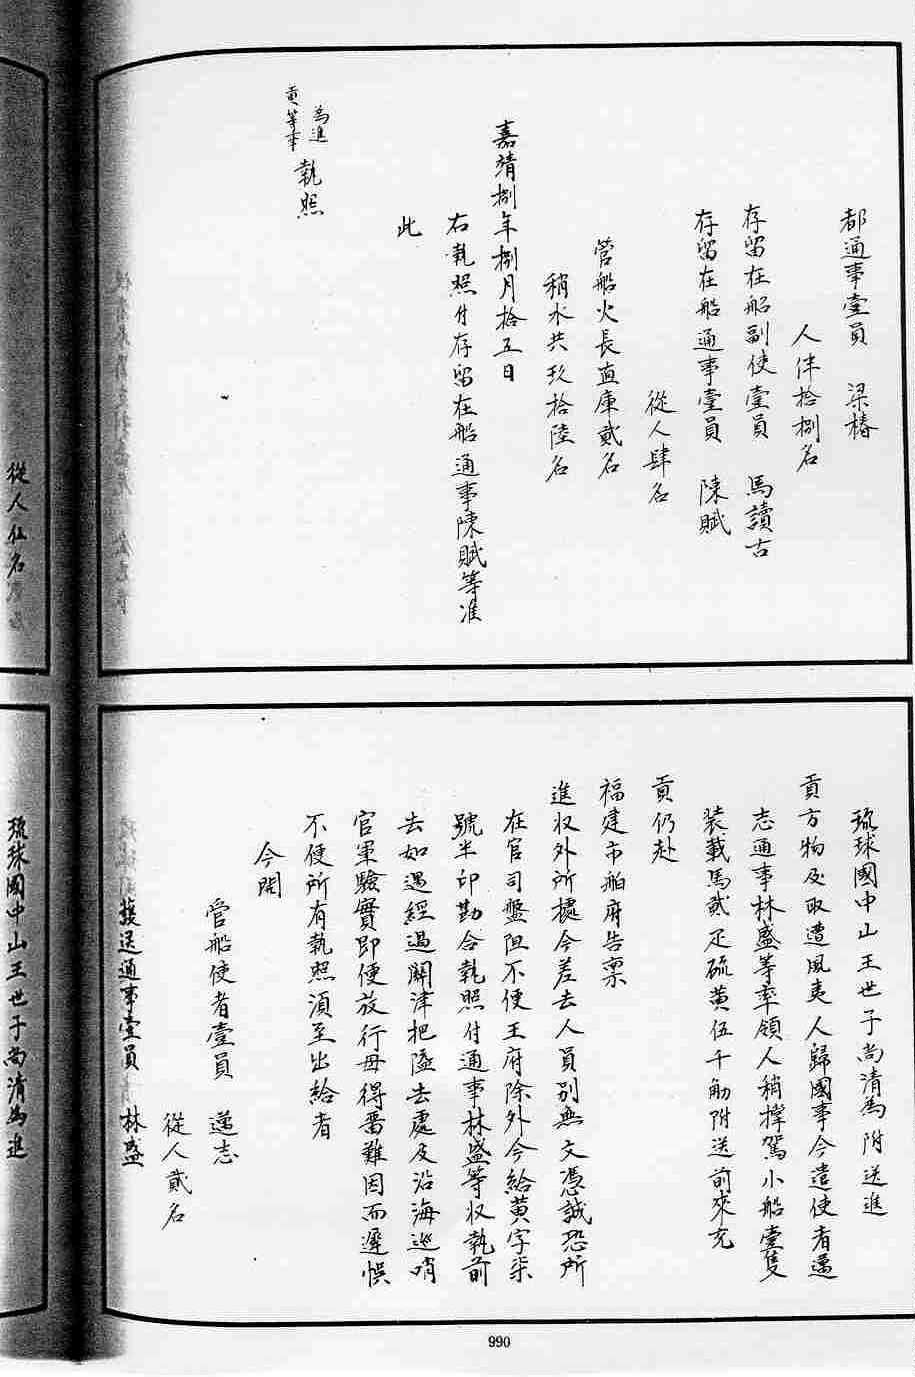 都通事壹員　梁椿
人伴拾捌名
存留在船副使壹員　馬讀古
存留在船通事壹員　陳賦
從人肆名
管船火長直庫貳名
稍水共玖拾陸名
嘉靖捌年捌月拾五日
右執照付存留在船通事陳賦等准
此
為進
貢等事　執照
琉球國中山王世子尚清為附送進
貢方物及取遭風夷人歸國事今遣使者邁
志通事林盛等率領人稍撑駕小船壹隻
装載馬貳疋硫黄伍千觔附送前來充
貢仍赴
福建市舶府告禀
進收外所據今差去人員別無文憑誠恐所
在官司盤阻不便王府除外今給黄字柒
號半印勘合執照付通事林盛等收執前
去如遇經過關津把隘去處及沿海巡哨
官軍驗實即便放行毋得留難因而遲悞
不便所有執照須至出給者
今開
管船使者壹員　邁志
從人貳名
護送通事壹員　林盛
從人
名
琉球國中山王世子尚清為進
990